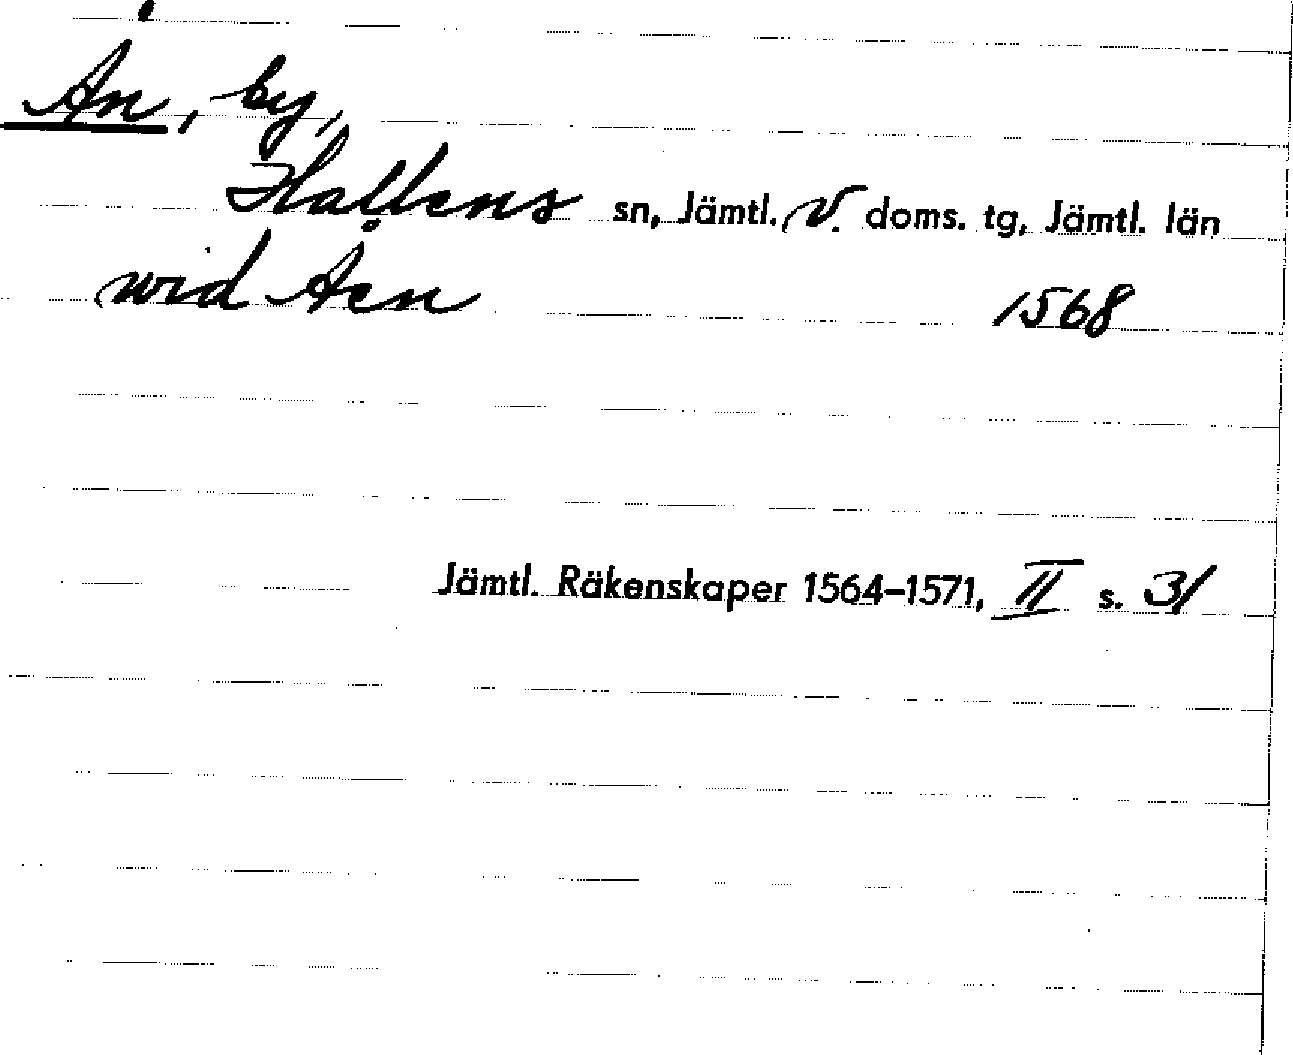 Ån, by,
Hallens sn, Jämtl. V. doms. tg, Jämtl. län
wid Åen 1568
Jämtl. Räkenskaper 1564–1571, II s. 31